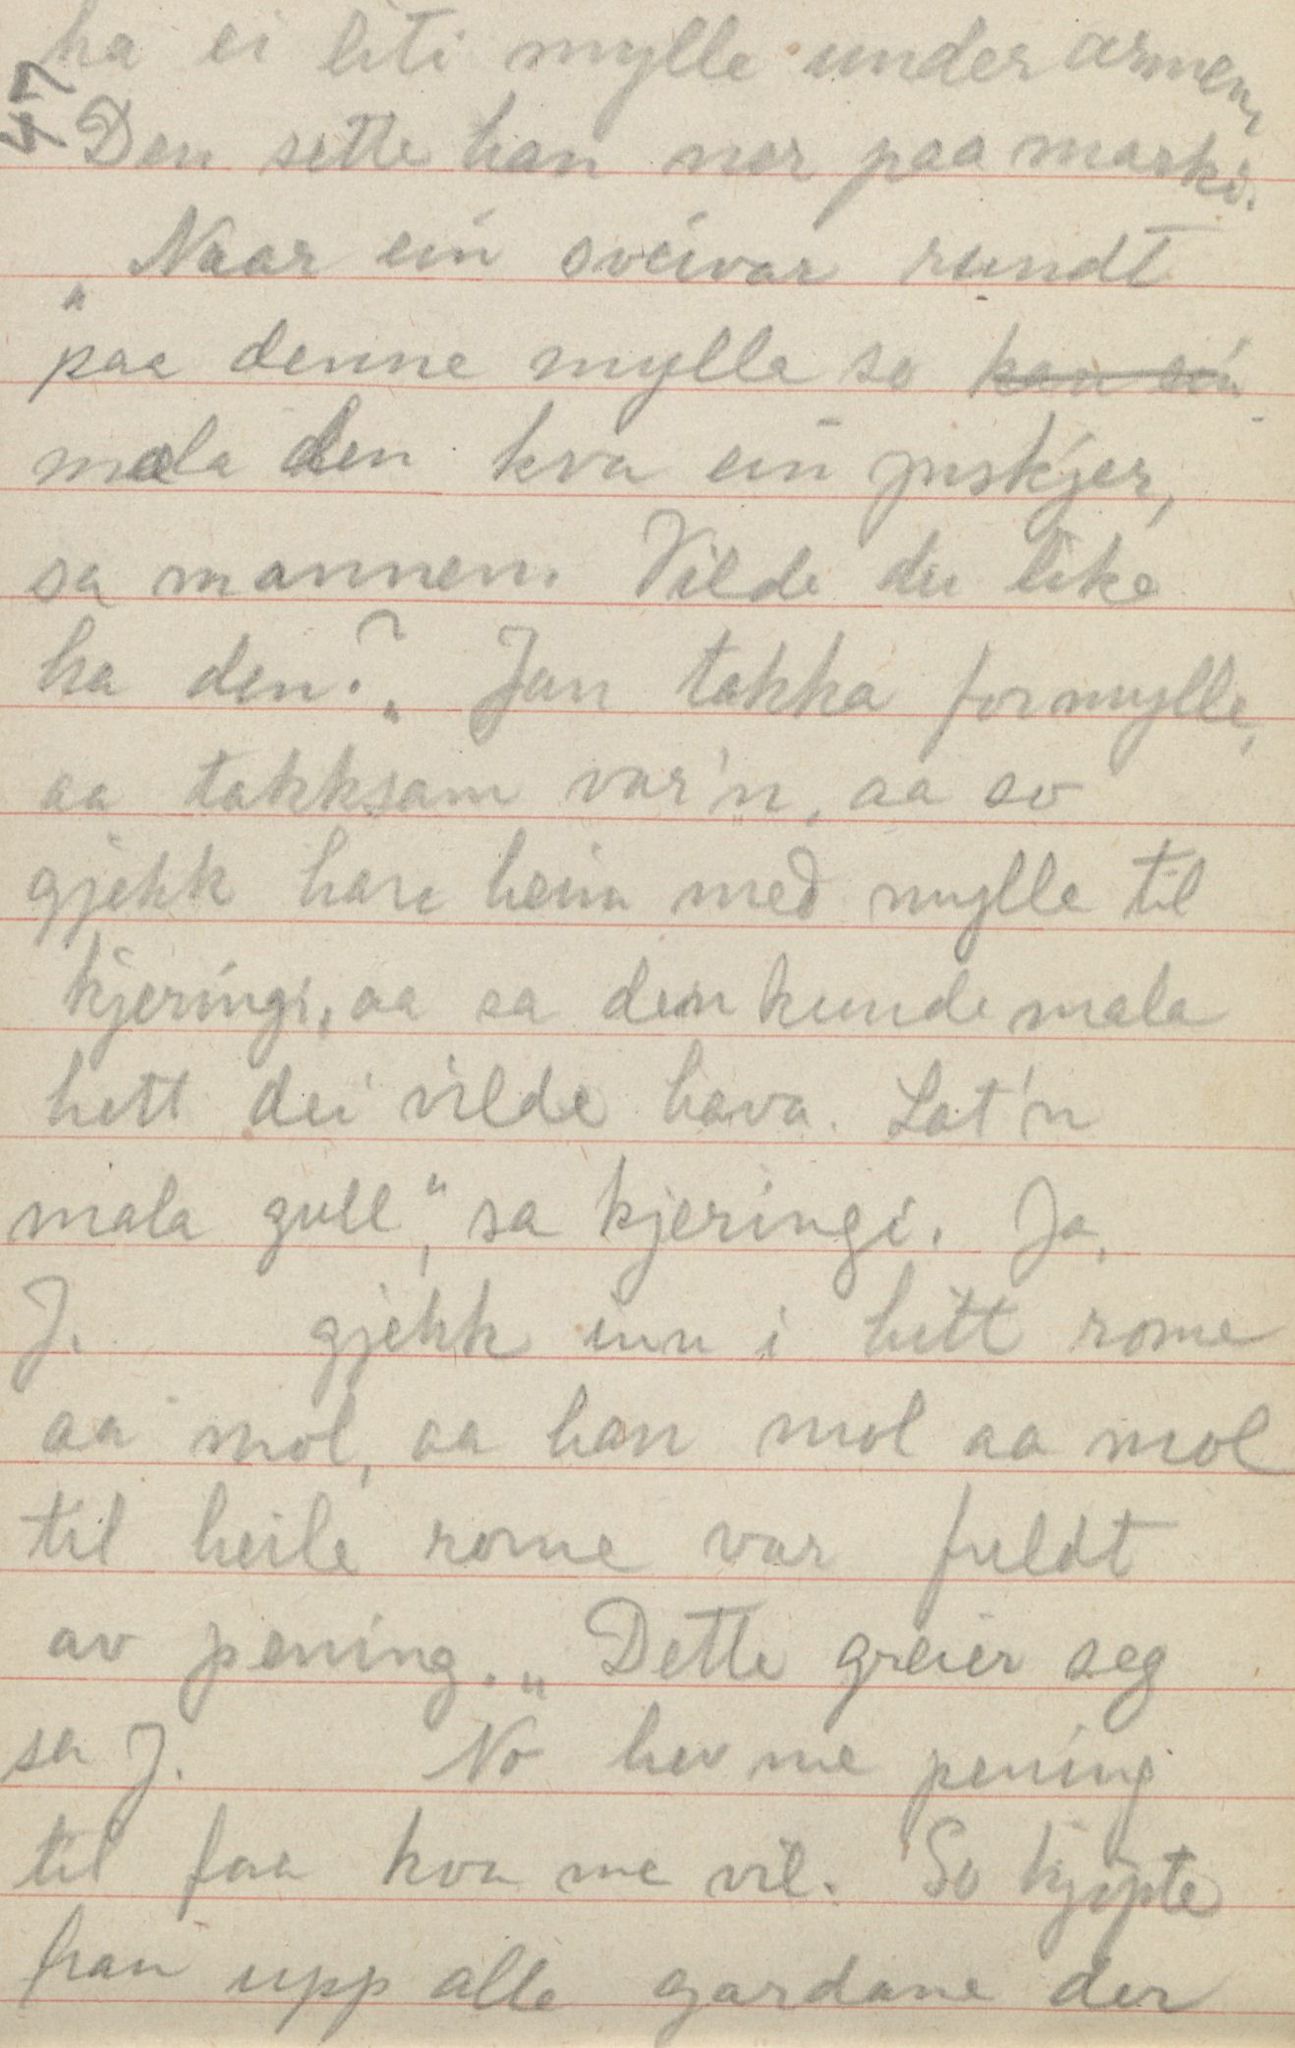 47
ha ei liti mylle under armen,
Den sette han ner paa marki.
„Naar ein sveivar rundt
paa denne mylla so kan ein
mala den kva ein ynskjer,
sa mannen. Vilde du like
ha den?" Jan takka for mylle,
aa takksam var'n, aa so
gjekk han heim med mylle til
kjeringi, aa sa den kunde mala
hett dei vilde hava. Lat'n
mala gull", sa kjeringi. Ja,
J. gjekk inn i hitt rome
aa mol, aa han mol aa mol
til heile rome var fuldt
av pening. „Dette greier seg
sa J. No hev me pening
til faa kva me vil. So kjøpte
han upp alle gardane der